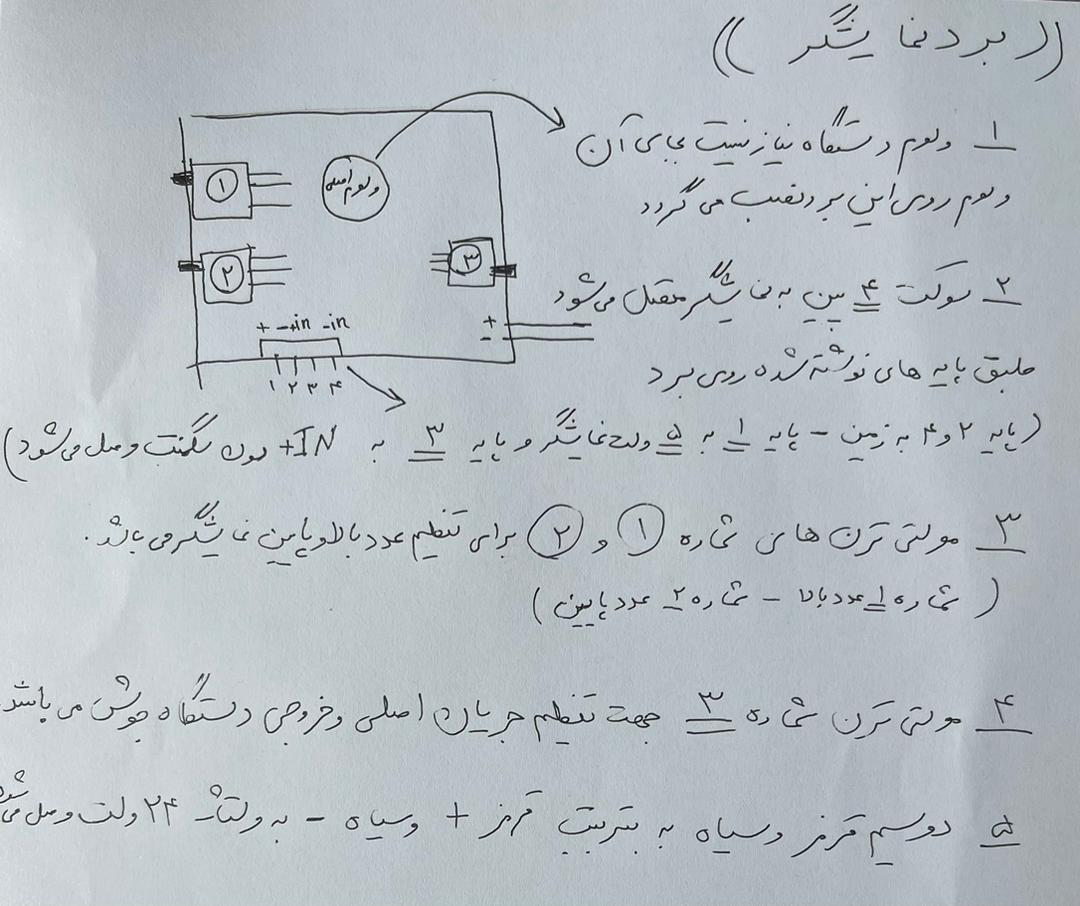 ((برد نمایشگر))
۱ ولوم دستگاه نیاز نیست بجای آن
ولوم روی این برد نصب می گردد
۱
ولوم اصلی
۲
۳
+ - +in -in
+
-
۱ ۲ ۳ ۴
۲ سوکت ۴ پین به نمایشگر متصل می شود
طبق پایه های نوشته شده روی برد
(پایه ۲ و ۴ به زمین - پایه ۱ به ۵ ولت نمایشگر و پایه ۳ به IN+ سون سگمنت وصل می شود)
۳ مولتی ترن های شماره ۱ و ۲ برای تنظیم عدد بالا و پایین نمایشگر می باشد.
(شماره ۱ عدد بالا - شماره ۲ عدد پایین)
۴ مولتی ترن شماره ۳ جهت تنظیم جریان اصلی و خروجی دستگاه جوش می باشد.
۵ دو سیم قرمز و سیاه به ترتیب قرمز + و سیاه - به ولتاژ ۲۴ ولت وصل می شود